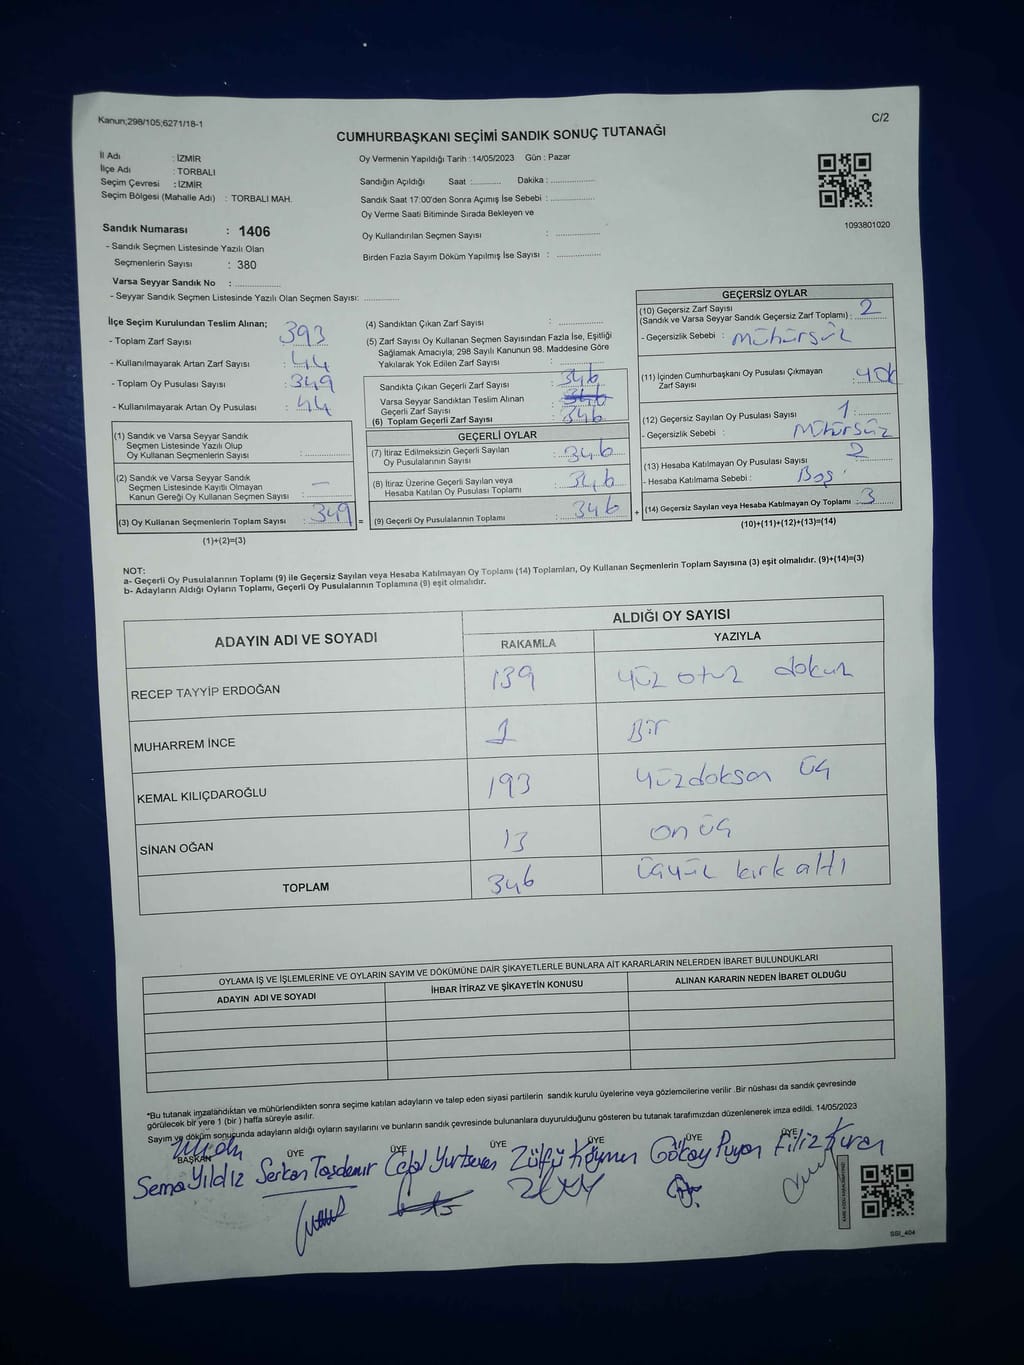 Kanun;298/105;6271/18-1
C/2
CUMHURBAŞKANI SEÇİMİ SANDIK SONUÇ TUTANAĞI
İl Adı : İZMİR
İlçe Adı : TORBALI
Seçim Çevresi : İZMİR
Seçim Bölgesi (Mahalle Adı) : TORBALI MAH.
Oy Vermenin Yapıldığı Tarih : 14/05/2023 Gün : Pazar
Sandığın Açıldığı Saat :.......... Dakika : ...............
Sandık Saat 17:00'den Sonra Açımış İse Sebebi : ...............
Oy Verme Saati Bitiminde Sırada Bekleyen ve
Oy Kullandırılan Seçmen Sayısı : ...............
Birden Fazla Sayım Döküm Yapılmış İse Sayısı : ...............
1093801020
Sandık Numarası : 1406
- Sandık Seçmen Listesinde Yazılı Olan
Seçmenlerin Sayısı : 380
Varsa Seyyar Sandık No : ...............
- Seyyar Sandık Seçmen Listesinde Yazılı Olan Seçmen Sayısı: ............
İlçe Seçim Kurulundan Teslim Alınan;
- Toplam Zarf Sayısı : 393
- Kullanılmayarak Artan Zarf Sayısı : 44
- Toplam Oy Pusulası Sayısı : 349
- Kullanılmayarak Artan Oy Pusulası : 44
(1) Sandık ve Varsa Seyyar Sandık
Seçmen Listesinde Yazılı Olup
Oy Kullanan Seçmenlerin Sayısı : ...............
(2) Sandık ve Varsa Seyyar Sandık
Seçmen Listesinde Kayıtlı Olmayan
Kanun Gereği Oy Kullanan Seçmen Sayısı : —
(3) Oy Kullanan Seçmenlerin Toplam Sayısı : 349 =
(1)+(2)=(3)
(4) Sandıktan Çıkan Zarf Sayısı : ...............
(5) Zarf Sayısı Oy Kullanan Seçmen Sayısından Fazla İse, Eşitliği
Sağlamak Amacıyla; 298 Sayılı Kanunun 98. Maddesine Göre
Yakılarak Yok Edilen Zarf Sayısı : ...............
Sandıkta Çıkan Geçerli Zarf Sayısı : 346
Varsa Seyyar Sandıktan Teslim Alınan
Geçerli Zarf Sayısı : 346
(6) Toplam Geçerli Zarf Sayısı : 346
GEÇERLİ OYLAR
(7) İtiraz Edilmeksizin Geçerli Sayılan
Oy Pusulalarının Sayısı : 346
(8) İtiraz Üzerine Geçerli Sayılan veya
Hesaba Katılan Oy Pusulası Toplamı : 346
(9) Geçerli Oy Pusulalarının Toplamı : 346 +
GEÇERSİZ OYLAR
(10) Geçersiz Zarf Sayısı
(Sandık ve Varsa Seyyar Sandık Geçersiz Zarf Toplamı) : 2
- Geçersizlik Sebebi : Mühürsüz
(11) İçinden Cumhurbaşkanı Oy Pusulası Çıkmayan
Zarf Sayısı : yok
(12) Geçersiz Sayılan Oy Pusulası Sayısı : 1
- Geçersizlik Sebebi : Mühürsüz
(13) Hesaba Katılmayan Oy Pusulası Sayısı : 2
- Hesaba Katılmama Sebebi : Boş
(14) Geçersiz Sayılan veya Hesaba Katılmayan Oy Toplamı : 3
(10)+(11)+(12)+(13)=(14)
NOT:
a- Geçerli Oy Pusulalarının Toplamı (9) ile Geçersiz Sayılan veya Hesaba Katılmayan Oy Toplamı (14) Toplamları, Oy Kullanan Seçmenlerin Toplam Sayısına (3) eşit olmalıdır. (9)+(14)=(3)
b- Adayların Aldığı Oyların Toplamı, Geçerli Oy Pusulalarının Toplamına (9) eşit olmalıdır.
ADAYIN ADI VE SOYADI
ALDIĞI OY SAYISI
RAKAMLA YAZIYLA
RECEP TAYYİP ERDOĞAN 139 yüz otuz dokuz
MUHARREM İNCE 1 Bir
KEMAL KILIÇDAROĞLU 193 yüzdoksan üç
SİNAN OĞAN 13 on üç
TOPLAM 346 üçyüz kırk altı
OYLAMA İŞ VE İŞLEMLERİNE VE OYLARIN SAYIM VE DÖKÜMÜNE DAİR ŞİKAYETLERLE BUNLARA AİT KARARLARIN NELERDEN İBARET BULUNDUKLARI
ADAYIN ADI VE SOYADI İHBAR İTİRAZ VE ŞİKAYETİN KONUSU ALINAN KARARIN NEDEN İBARET OLDUĞU
*Bu tutanak imzalandıktan ve mühürlendikten sonra seçime katılan adayların ve talep eden siyasi partilerin sandık kurulu üyelerine veya gözlemcilerine verilir .Bir nüshası da sandık çevresinde
görülecek bir yere 1 (bir ) hafta süreyle asılır.
Sayım ve döküm sonucunda adayların aldığı oyların sayılarını ve bunların sandık çevresinde bulunanlara duyurulduğunu gösteren bu tutanak tarafımızdan düzenlenerek imza edildi. 14/05/2023
BAŞKAN ÜYE ÜYE ÜYE ÜYE ÜYE ÜYE
Sema Yıldız Serkan Taşdemir Celal Yurtseven Zülfü Gökay Puyan Filiz Kıran
SSI_404